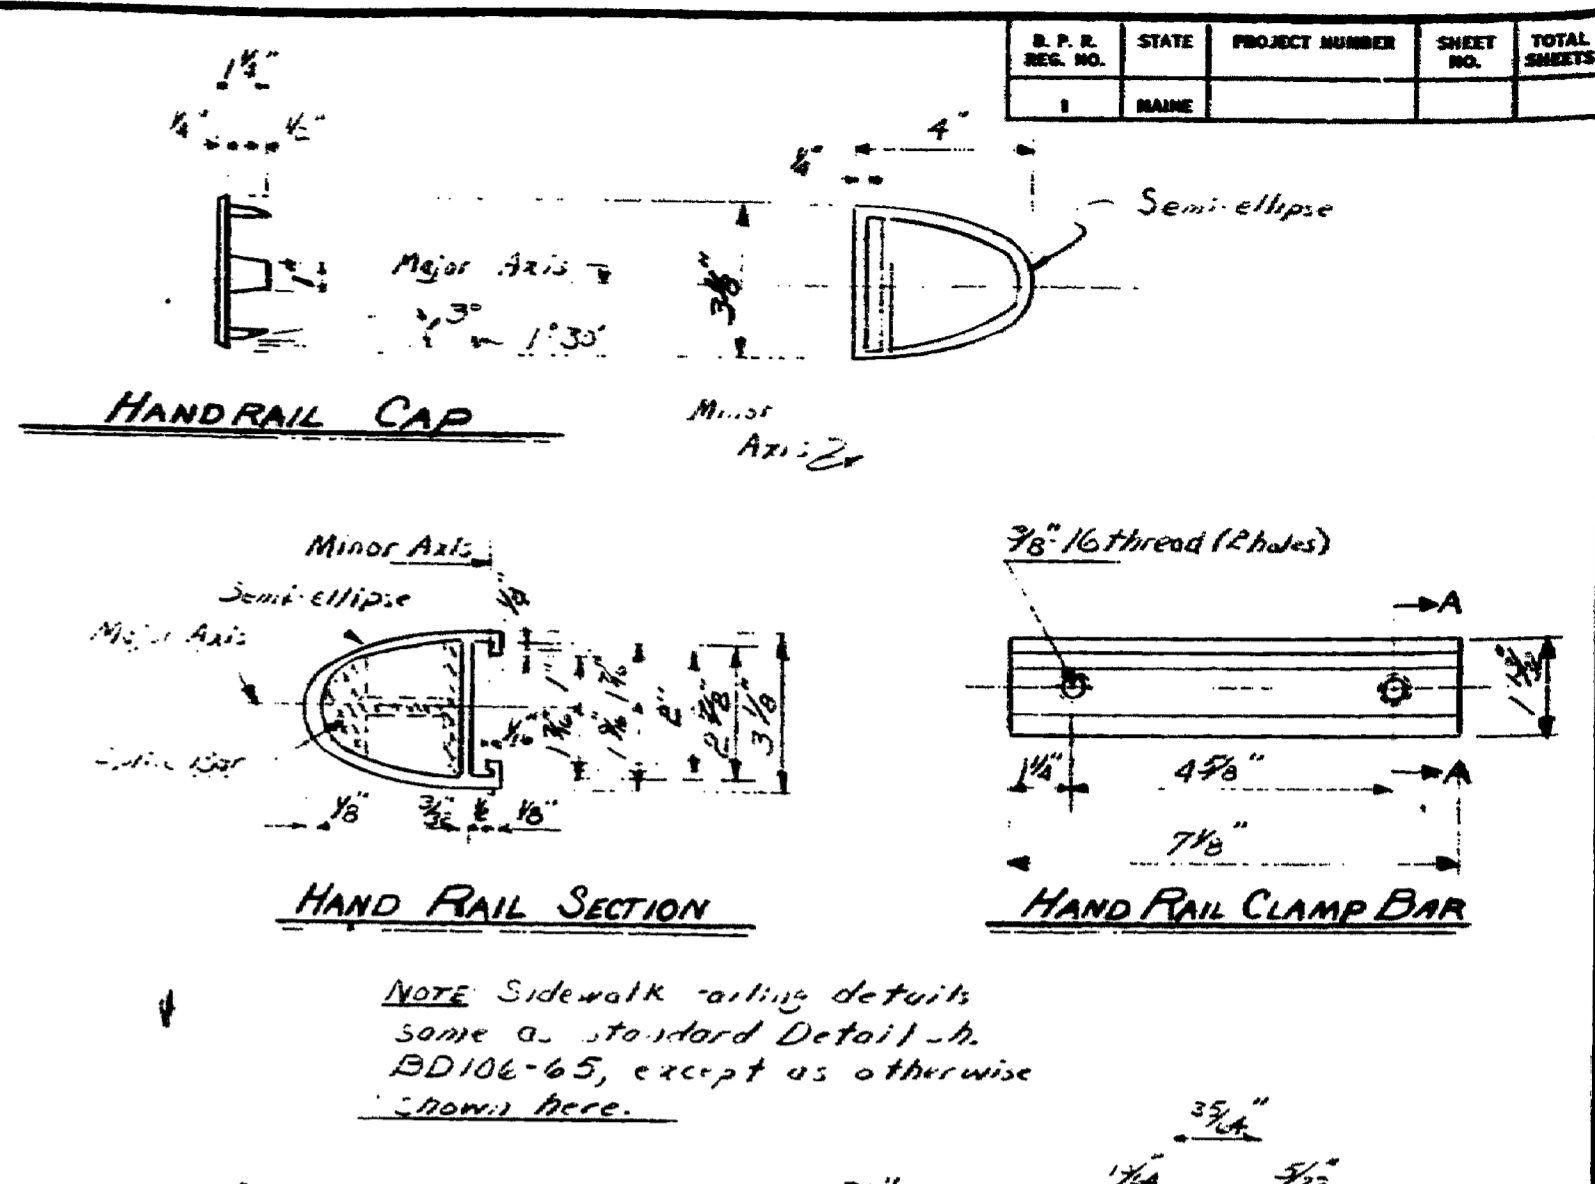 B. P. R. REG. NO.
STATE
PROJECT NUMBER
SHEET NO.
TOTAL SHEETS
1
MAINE
1 1/4"
1/4"
1/2"
4"
1/4"
Semi-ellipse
Major Axis
3 1/8"
3°
1°30'
HANDRAIL CAP
Minor
Axis
Minor Axis
Semi-ellipse
Major Axis
1/8"
1"
2"
2 7/8"
3 1/8"
1/8"
3/32
1/8"
HAND RAIL SECTION
3/8"-16 thread (2 holes)
A
1 1/4"
4 5/8"
A
7 1/8"
HAND RAIL CLAMP BAR
NOTE Sidewalk railing details
same as standard Detail
except as otherwise
shown here.
35/64"
5/32"